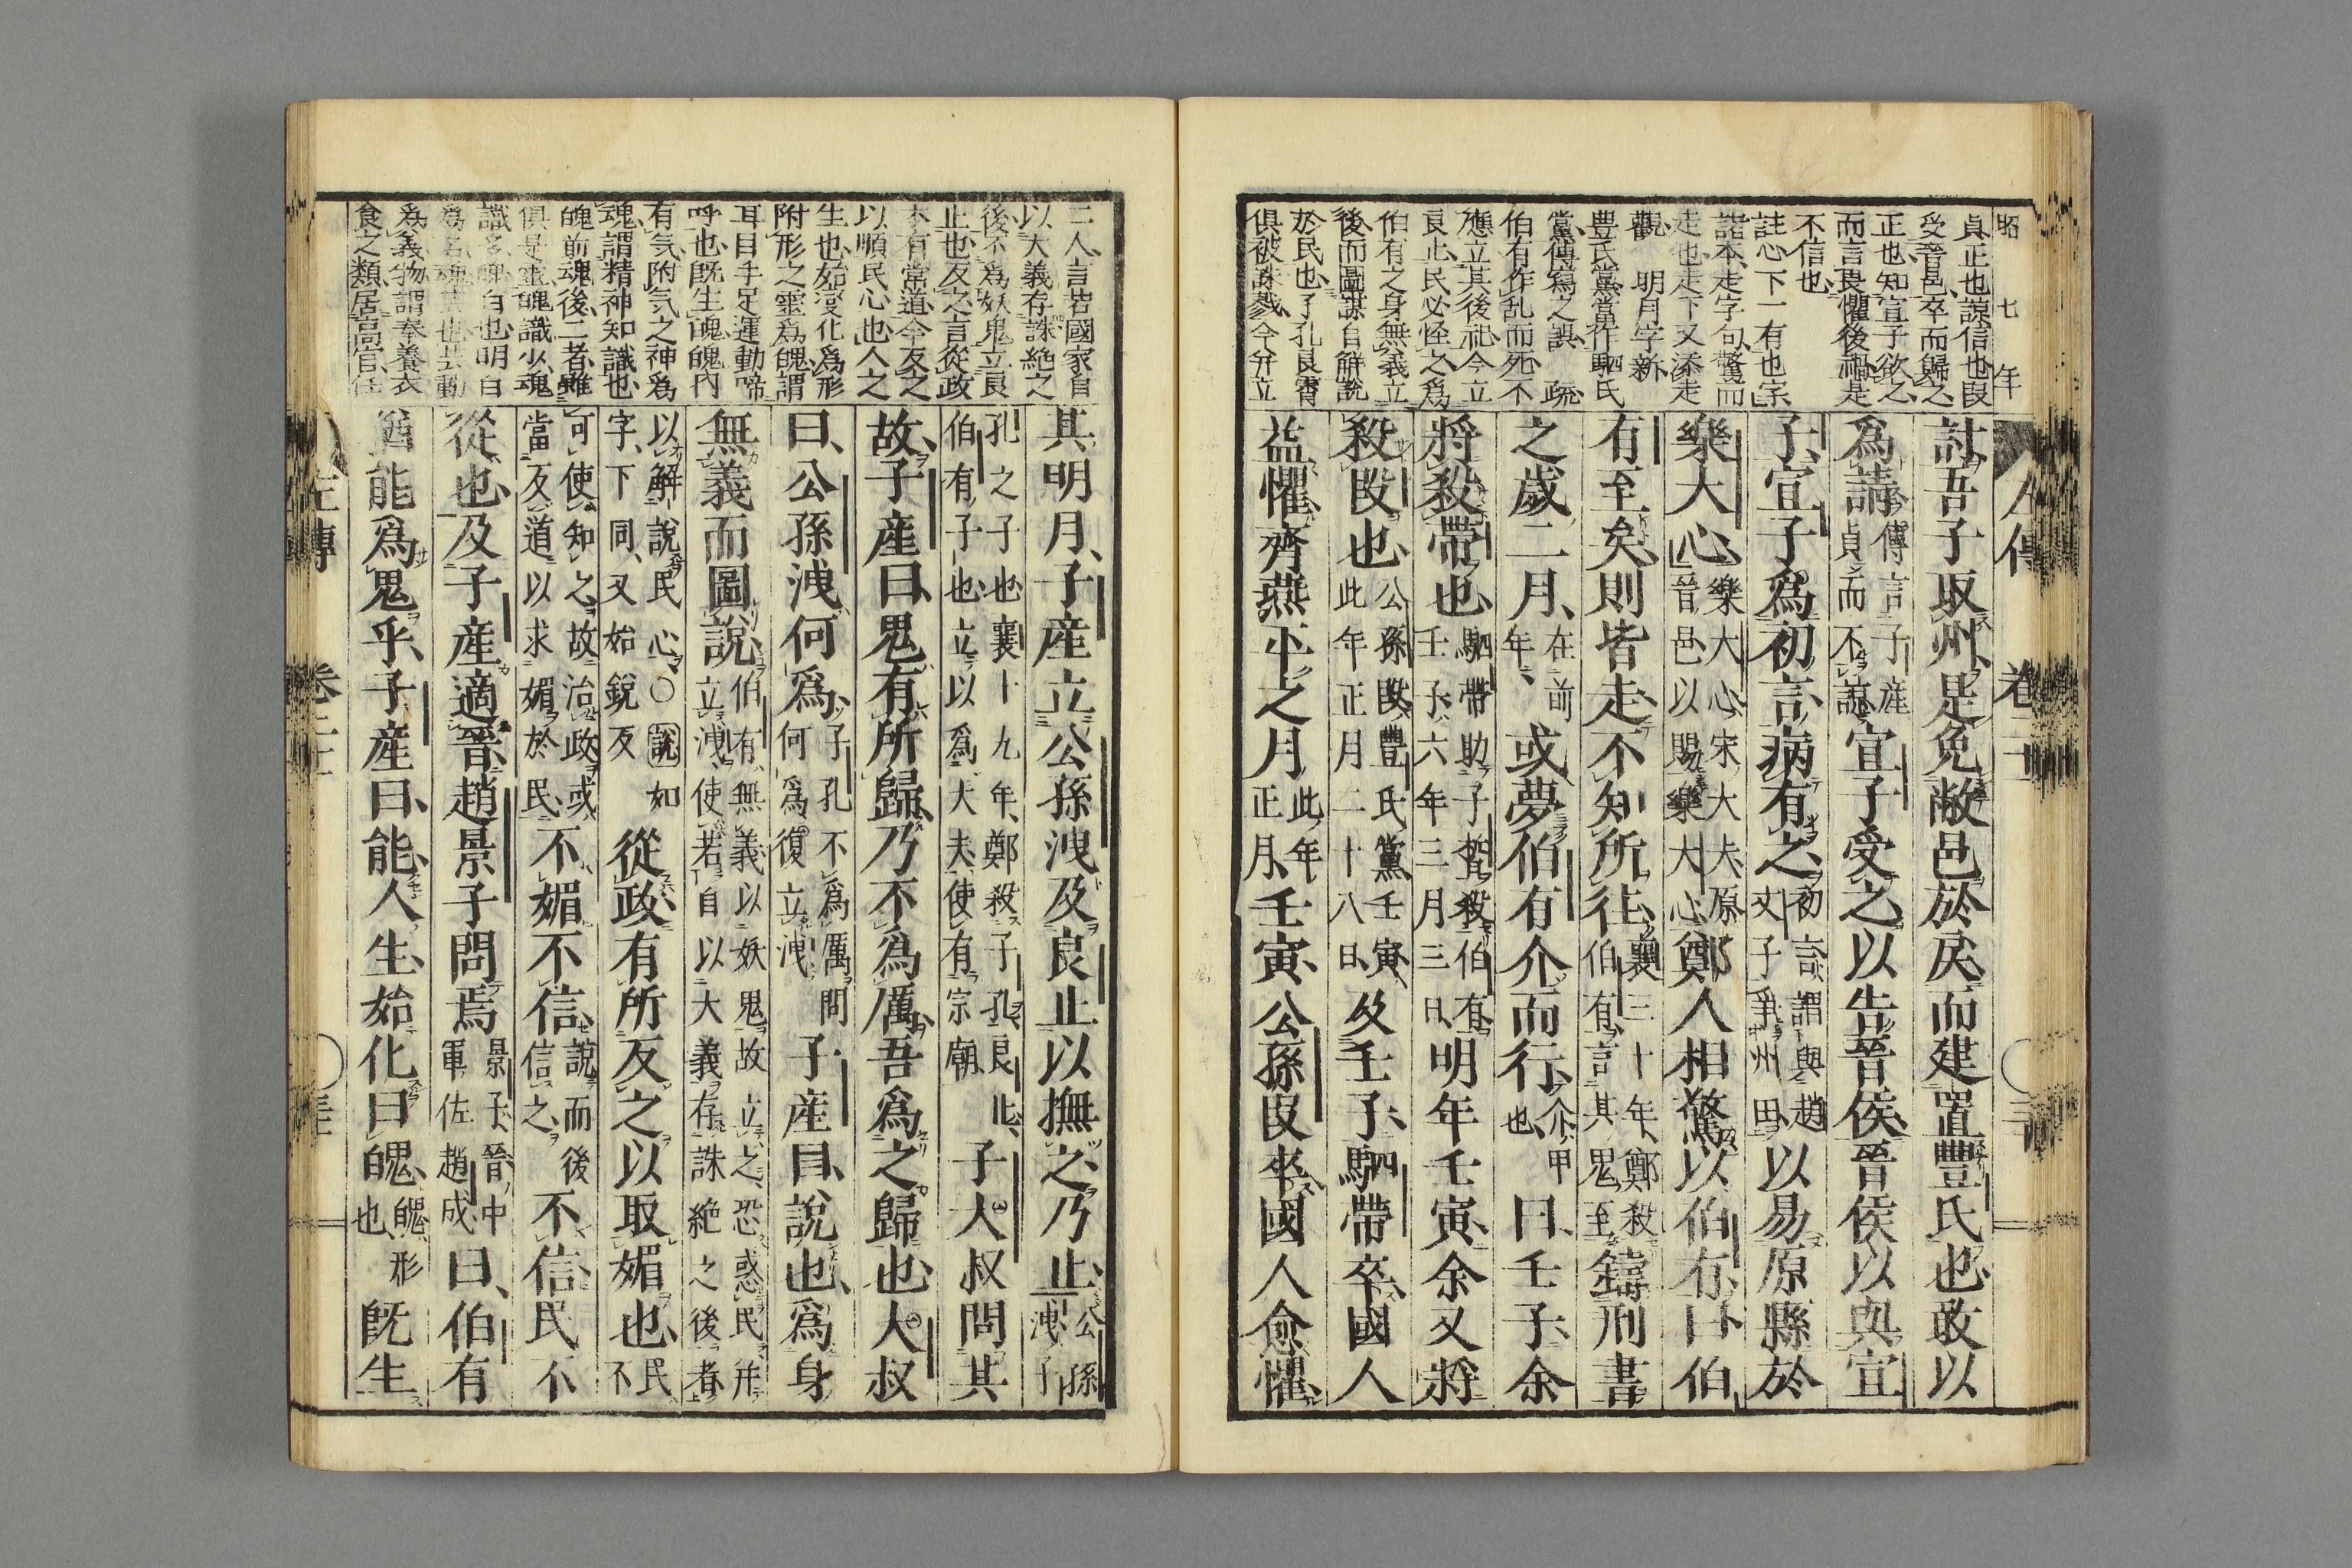 昭 七 年
貞正也諒信也叚
受晉邑卒而歸之
正也知宣子欲之
而言畏懼後禍是
不信也
註心下一有也字
諸本走字句驚而
走也走下又添走
觀 明月字新
豊氏黨當作駟氏
黨傳寫之誤 疏
伯有作乱而死不
應立其後祀今立
良止民必怪之爲
伯有之身無義立
後而圖謀自觧說
於民也了孔良霄
俱被誅戮今并立
討吾子取州是免敝邑於戾而建置豐氏也敢以
爲請傳言子產貞而不諒宣子受之以告晉侯晉侯以與宣
子宣子爲初言病有之初言謂與趙文子爭州田以易原縣於
樂大心樂大心宋大夫原晉邑以賜樂大心鄭人相驚以伯有曰伯
有至矣則皆走不知所往襄三十年鄭殺伯有言其鬼至鑄刑書
之歲二月在前年或夢伯有介而行介甲也曰壬子余
將殺帶也駟帶助子皙殺伯有壬子六年三月三日明年壬寅余又將
殺段也公孫段豐氏黨壬寅此年正月二十八日及壬子駟帶卒國人
益懼齊燕平之月此年正月壬寅公孫段卒國人愈懼
左傳 卷二十二
二人言若國家自
以大義存誅絕之
後不爲妖鬼立良
止也反之言從政
本有常道今反之
以順民心也人之
生也始変化爲形
附形之靈爲魄謂
耳目手足運動啼
呼也既生魄魄内
有気附気之神爲
魂謂精神知識也
魄前魂後二者雖
俱是靈魄識少魂
識多魄白也明白
爲名魂芸也芸動
爲義物謂奉養衣
食之類居高官任
其明月子產立公孫洩及良止以撫之乃止公孫洩子
孔之子也襄十九年鄭殺子孔良止伯有子也立以爲大夫使有宗廟子大叔問其
故子產曰鬼有所歸乃不爲厲吾爲之歸也大叔
曰公孫洩何爲子孔不爲厲問何爲復立洩子產曰說也爲身
無義而圖說伯有無義以妖鬼故立之恐惑民并立洩使若自以大義存誅絕之後者
以解說民心〇說如字下同又始銳反從政有所反之以取媚也民不
可使知之故治政或當反道以求媚於民不媚不信說而後信之不信民不
從也及子產適晉趙景子問焉景子晉中軍佐趙成曰伯有
猶能爲鬼乎子產曰能人生始化曰魄魄形也既生
左傳 卷二十二